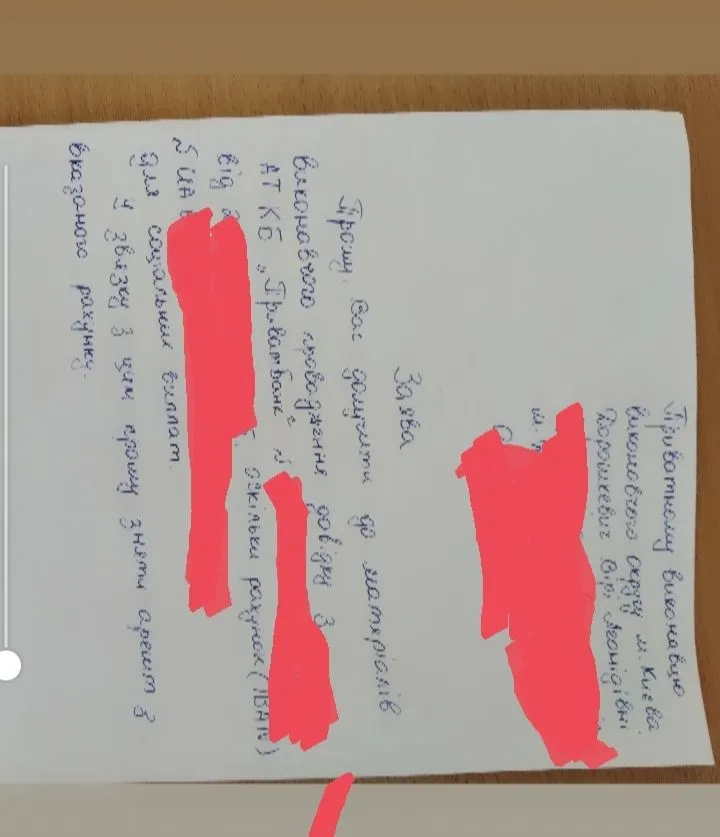 Приватному виконавцю
виконавчого округу м. Києва
Дорошкевич Вірі Леонідівні
м.
Заява
Прошу Вас долучити до матеріалів
виконавчого провадження довідку з
АТ КБ „Приватбанк" №
від оскільки рахунок (IBAN)
№ UA
для соціальних виплат.
У звязку з цим прошу зняти арешт з
вказаного рахунку.